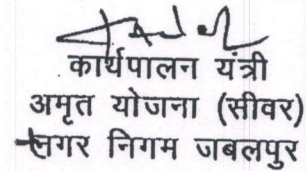 कार्यपालन यंत्री
अमृत योजना (सीवर)
नगर निगम जबलपुर